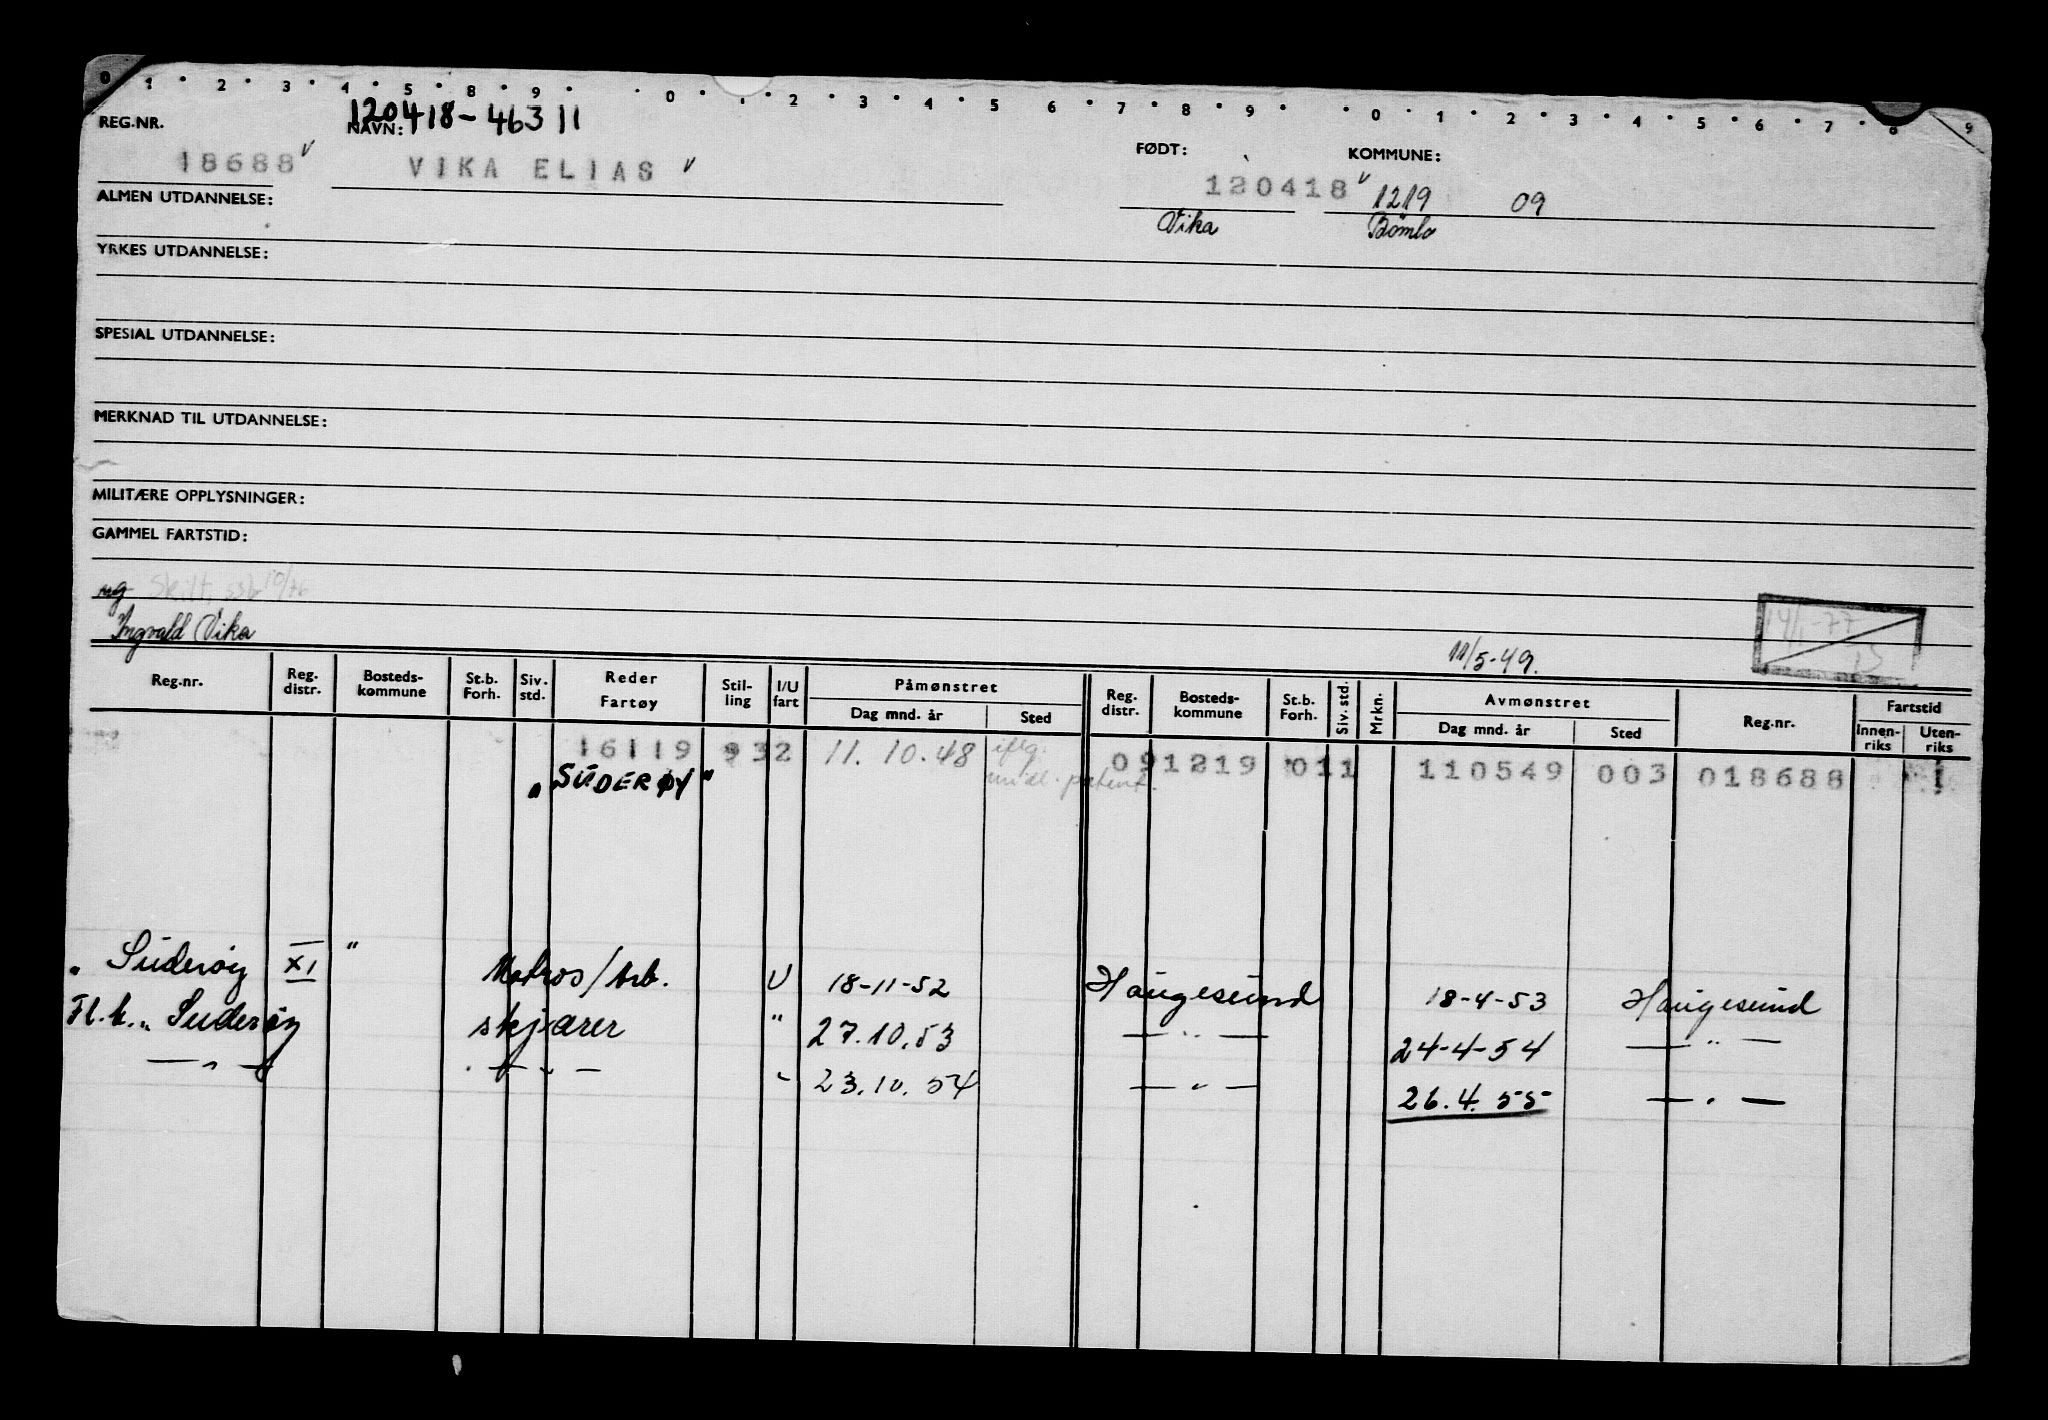 0 1 2 3 4 5 8 9 0 1 2 3 4 5 6 7 8 9 0 1 2 3 4 5 6 7 8 9
120418-46311
REG.NR. NAVN: FØDT: KOMMUNE:
18688 v VIKA ELIAS v 120418 v 1219 09
Vika Bömlo
ALMEN UTDANNELSE:
YRKES UTDANNELSE:
SPESIAL UTDANNELSE:
MERKNAD TIL UTDANNELSE:
MILITÆRE OPPLYSNINGER:
GAMMEL FARTSTID:
ug Skilt,
Ingvald Vika 11/5-49. 14/1-77
Reg.nr. Reg. distr. Bosteds-kommune St.b. Forh. Siv. std. Reder Fartøy Stil-ling I/U fart Påmønstret Dag mnd. år Sted Reg. distr. Bosteds-kommune St.b. Forh. Siv. std. Mrkn. Avmønstret Dag mnd. år Sted Reg.nr. Fartstid Innen-riks Uten-riks
16119 932 11.10.48 iflg. 091219 011 110549 003 018688 1
"SÜDERØY"
" Süderöy XI " Matros/Arb. U 18-11-52 Haugesund 18-4-53 Haugesund
Fl.k. " Suderöy skjærer " 27.10.53 — " — 24-4-54 — " —
— " — — " — " 23.10.54 — " — 26.4.55 — " —